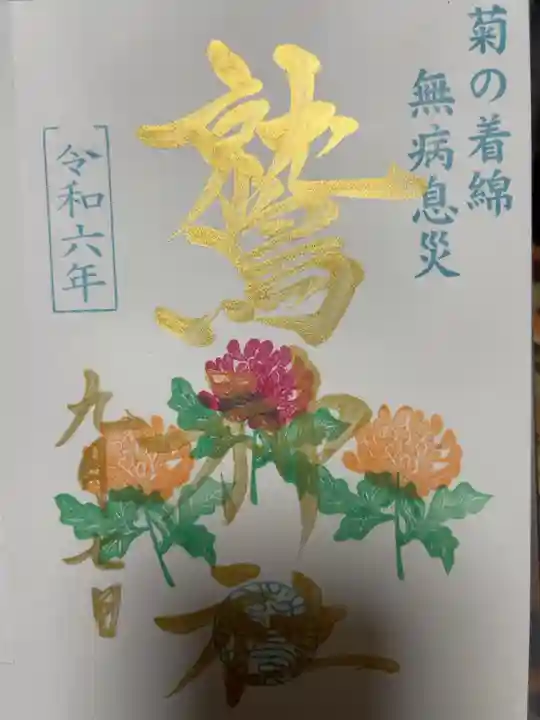 菊の着綿
無病息災
鷲神社
令和六年
九月十七日